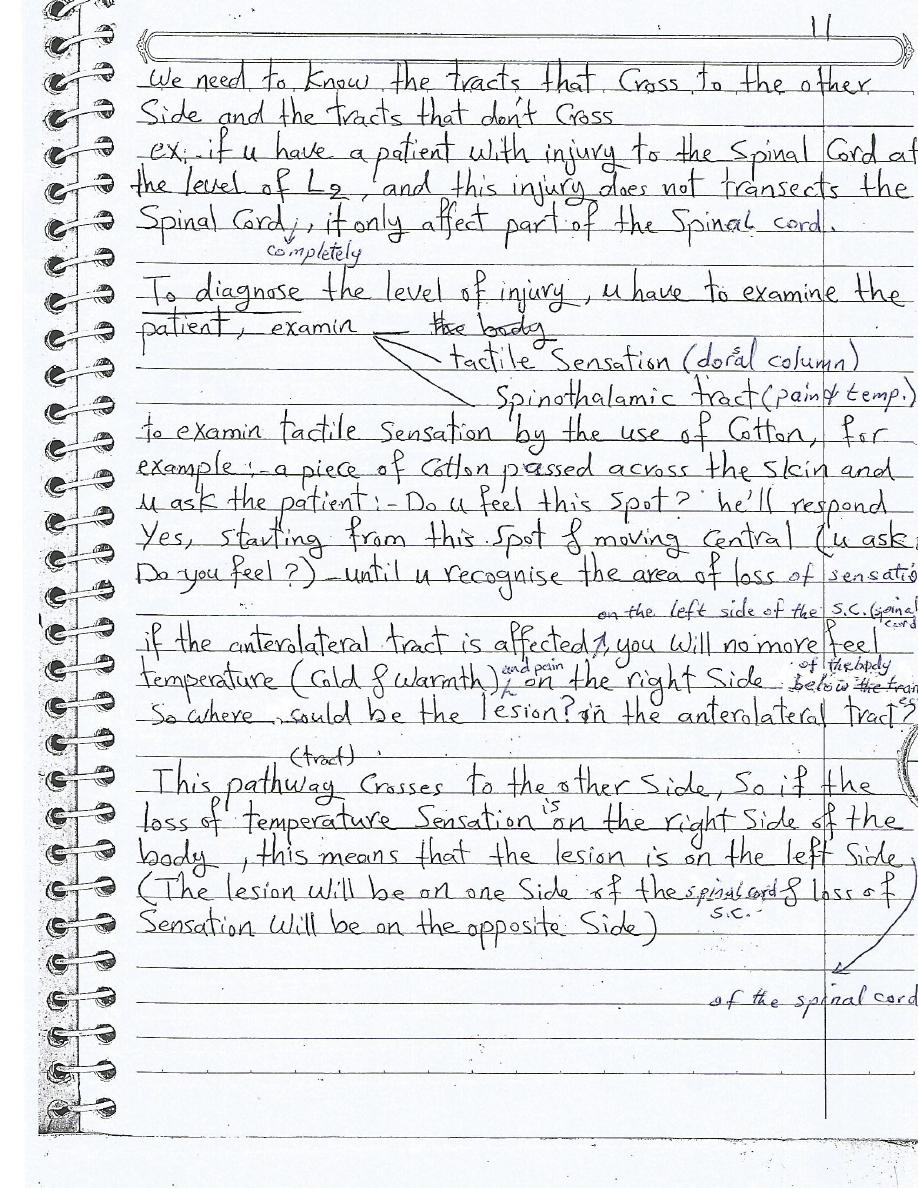 11
We need to Know the tracts that Cross to the other
Side and the tracts that don't Cross
ex:- if u have a patient with injury to the Spinal Cord at
the level of L2, and this injury does not transects the
Spinal Cord, , it only affect part of the Spinal cord.
completely
To diagnose the level of injury, u have to examine the
patient, examin the body
tactile Sensation (dorsal column)
Spinothalamic tract (pain & temp.)
to examin tactile Sensation by the use of Cotton, for
example :- a piece of Cotton passed across the skin and
u ask the patient :- Do u feel this spot? he'll respond
Yes, starting from this spot & moving Central (u ask:
Do you feel?) - until u recognise the area of loss of sensatio
on the left side of the S.C. (spinal
cord
if the anterolateral tract is affected, you will no more feel
and pain of the body
temperature (Cold & Warmth), on the right Side below the
So where could be the lesion? in the anterolateral tract?
(tract)
This pathway Crosses to the other Side, So if the
loss of temperature Sensation is on the right Side of the
body, this means that the lesion is on the left Side,
(The lesion will be on one Side of the spinal cord & loss of
S.C.
Sensation Will be on the opposite Side)
of the spinal cord